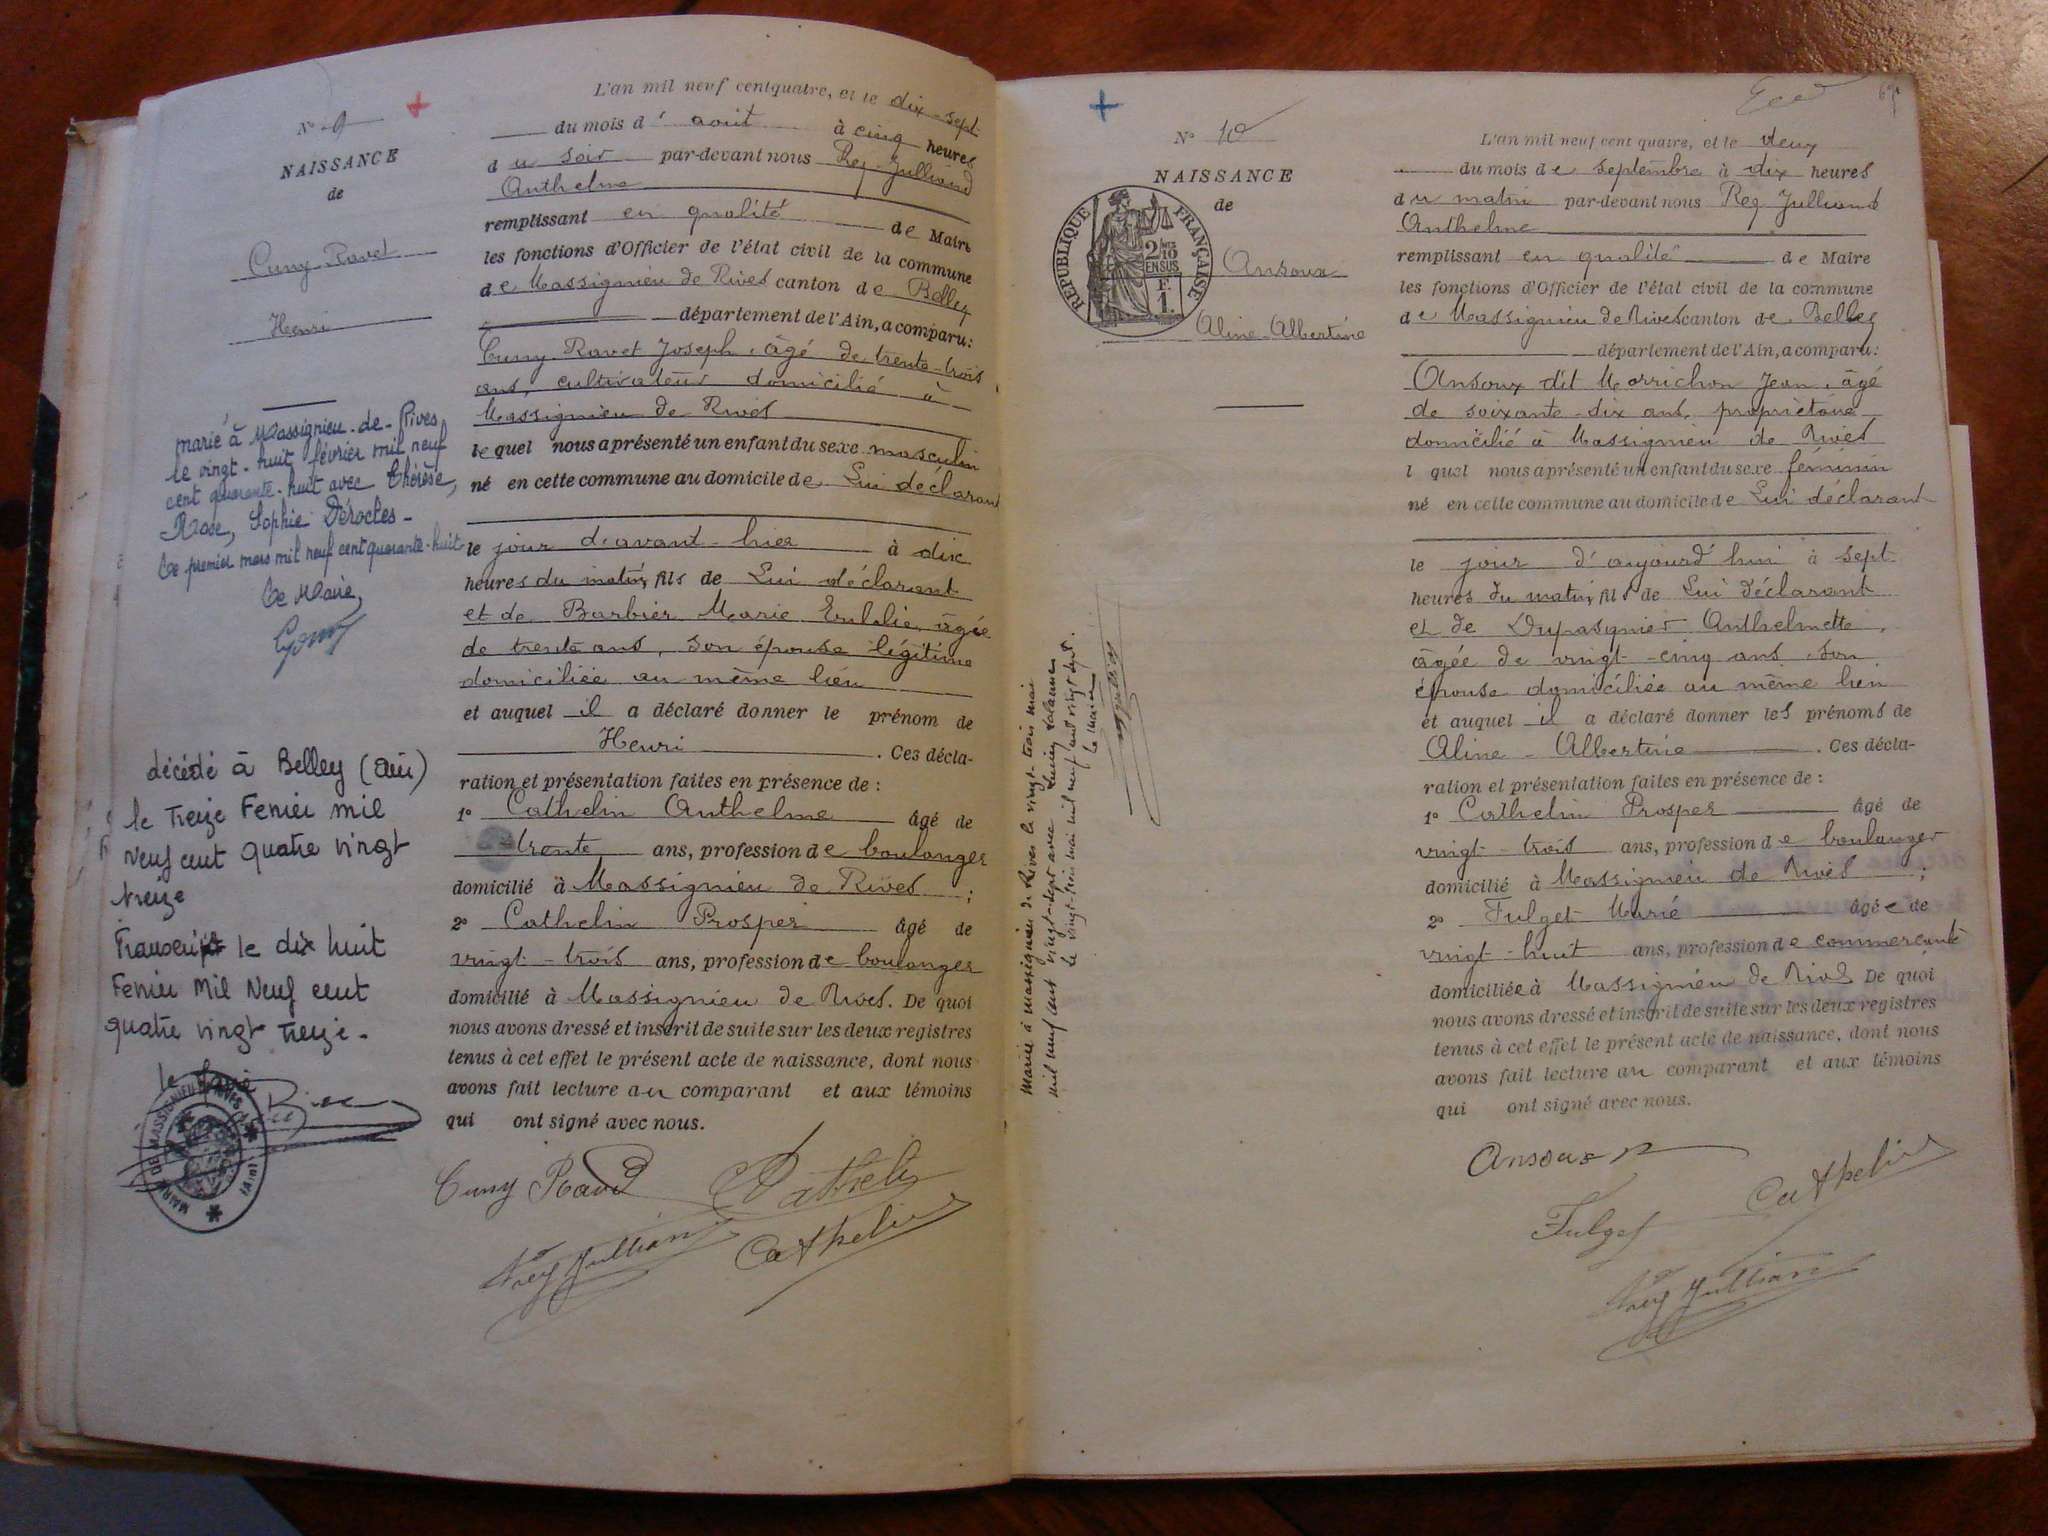 L'an mil neuf cent quatre, et le dix-sept
du mois d'août à cinq heures
du soir par-devant nous Rey-Julliand
Anthelme
remplissant en qualité de Maire
les fonctions d'Officier de l'état civil de la commune
de Massignieu de Rives canton de Belley
département de l'Ain, a comparu :
Cuny-Ravet Joseph, âgé de trente-trois
ans, cultivateur domicilié à
Massignieu de Rives
lequel nous a présenté un enfant du sexe masculin
né en cette commune au domicile de Lui déclarant
le jour d'avant-hier à dix
heures du matin, fils de Lui déclarant
et de Barbier Marie Eulalie, âgée
de trente ans, son épouse légitime
domiciliée au même lieu
et auquel il a déclaré donner le prénom de
Henri . Ces décla-
ration et présentation faites en présence de :
1º Cathelin Anthelme âgé de
trente ans, profession de boulanger
domicilié à Massignieu de Rives ;
2º Cathelin Prosper âgé de
vingt-trois ans, profession de boulanger
domicilié à Massignieu de Rives. De quoi
nous avons dressé et inscrit de suite sur les deux registres
tenus à cet effet le présent acte de naissance, dont nous
avons fait lecture au comparant et aux témoins
qui ont signé avec nous.
Cuny Ravet
Cathelin
Rey Julliand
Cathelin
Nº 9
NAISSANCE
de
Cuny-Ravet
Henri
marié à Massignieu-de-Rives
le vingt-huit février mil neuf
cent quarante-huit avec Thérèse,
Rose, Sophie Déroches-
Le premier mars mil neuf cent quarante-huit
Le Maire,
décédé à Belley (Ain)
le Treize Fevrier mil
Neuf cent quatre vingt
treize
Transcript le dix huit
Fevrier Mil Neuf cent
quatre vingt Treize-
le Maire
MAIRIE DE MASSIGNIEU DE RIVES
(Ain)
Nº 10
NAISSANCE
de
RÉPUBLIQUE FRANÇAISE
2/10
EN SUS
F.
1.
Ansoux
Aline-Albertine
Mariée à Massignieu de Rives le vingt-trois mai
mil neuf cent vingt-sept avec Lucien
Le vingt-trois mai mil neuf cent vingt sept.
Le Maire
L'an mil neuf cent quatre, et le deux
du mois de septembre à dix heures
du matin par-devant nous Rey Julliand
Anthelme
remplissant en qualité de Maire
les fonctions d'Officier de l'état civil de la commune
de Massignieu de Rives canton de Belley
département de l'Ain, a comparu :
Ansoux dit Marrichon Jean, âgé
de soixante-dix ans, propriétaire
domicilié à Massignieu de Rives
lquel nous a présenté un enfant du sexe féminin
né en cette commune au domicile de Lui déclarant
le jour d'aujourd'hui à sept
heures du matin, fils de Lui déclarant
et de Dupasquier Anthelmette,
âgée de vingt-cinq ans, son
épouse domiciliée au même lieu
et auquel il a déclaré donner les prénoms de
Aline-Albertine . Ces décla-
ration et présentation faites en présence de :
1º Cathelin Prosper âgé de
vingt-trois ans, profession de boulanger
domicilié à Massignieu de Rives ;
2º Fulget Marie âgée de
vingt-huit ans, profession de commerçante
domiciliée à Massignieu de Rives De quoi
nous avons dressé et inscrit de suite sur les deux registres
tenus à cet effet le présent acte de naissance, dont nous
avons fait lecture au comparant et aux témoins
qui ont signé avec nous.
Ansoux
Cathelin
Fulget
Rey Julliand